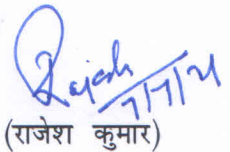 Rajesh
7/7/21
(राजेश कुमार)